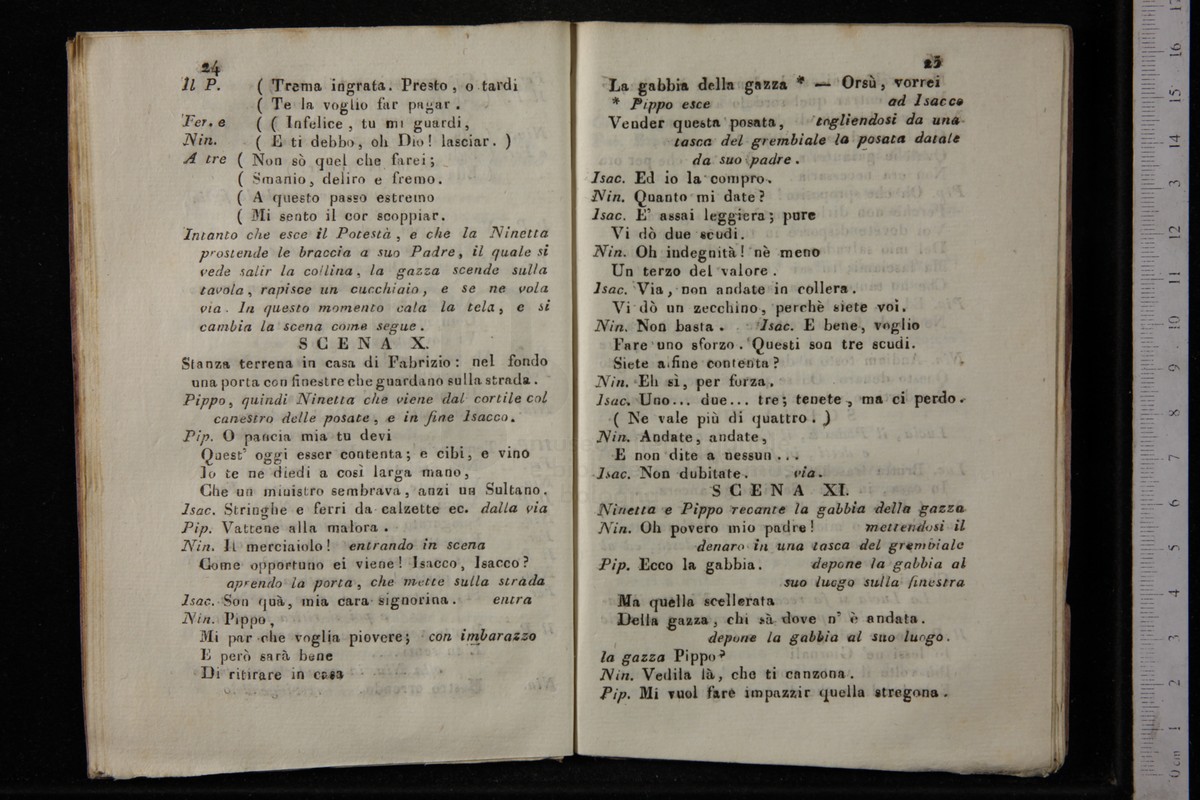 24
Il P. ( Trema ingrata. Presto, o tardi
( Te la voglio far pagar.
Fer. e ( ( Infelice, tu mi guardi,
Nin. ( E ti debbo, oh Dio! lasciar. )
A tre ( Non sò quel che farei;
( Smanio, deliro e fremo.
( A questo passo estremo
( Mi sento il cor scoppiar.
Intanto che esce il Potestà, e che la Ninetta
prostende le braccia a suo Padre, il quale si
vede salir la collina, la gazza scende sulla
tavola, rapisce un cucchiaio, e se ne vola
via. In questo momento cala la tela, e si
cambia la scena come segue.
SCENA X.
Stanza terrena in casa di Fabrizio: nel fondo
una porta con finestre che guardano sulla strada.
Pippo, quindi Ninetta che viene dal cortile col
canestro delle posate, e in fine Isacco.
Pip. O pancia mia tu devi
Quest' oggi esser contenta; e cibi, e vino
Io te ne diedi a così larga mano,
Che un ministro sembrava, anzi un Sultano.
Isac. Stringhe e ferri da calzette ec. dalla via
Pip. Vattene alla malora.
Nin. Il merciaiolo! entrando in scena
Come opportuno ei viene! Isacco, Isacco?
aprendo la porta, che mette sulla strada
Isac. Son quà, mia cara signorina. entra
Nin. Pippo,
Mi par che voglia piovere; con imbarazzo
E però sarà bene
Di ritirare in casa
25
La gabbia della gazza * — Orsù, vorrei
* Pippo esce ad Isacco
Vender questa posata, togliendosi da una
tasca del grembiale la posata datale
da suo padre.
Isac. Ed io la compro.
Nin. Quanto mi date?
Isac. E' assai leggiera; pure
Vi dò due scudi.
Nin. Oh indegnità! nè meno
Un terzo del valore.
Isac. Via, non andate in collera.
Vi dò un zecchino, perchè siete voi.
Nin. Non basta. Isac. E bene, voglio
Fare uno sforzo. Questi son tre scudi.
Siete alfine contenta?
Nin. Eh sì, per forza.
Isac. Uno... due... tre; tenete, ma ci perdo.
( Ne vale più di quattro. )
Nin. Andate, andate,
E non dite a nessun...
Isac. Non dubitate. via.
SCENA XI.
Ninetta e Pippo recante la gabbia della gazza
Nin. Oh povero mio padre! mettendosi il
denaro in una tasca del grembiale
Pip. Ecco la gabbia. depone la gabbia al
suo luogo sulla finestra
Ma quella scellerata
Della gazza, chi sà dove n' è andata.
depone la gabbia al suo luogo.
la gazza Pippo?
Nin. Vedila là, che ti canzona.
Pip. Mi vuol fare impazzir quella stregona.
0 cm 1 2 3 4 5 6 7 8 9 10 11 12 13 14 15 16 17